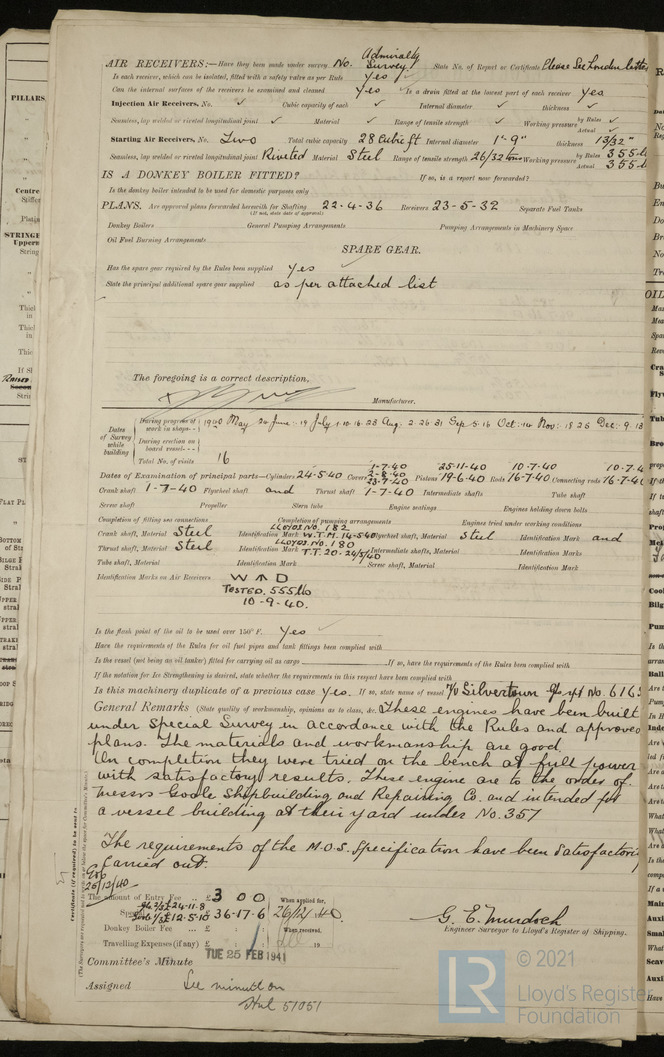 AIR RECEIVERS:—Have they been made under survey No. Admiralty Survey State No. of Report or Certificate Please See London letter
Is each receiver, which can be isolated, fitted with a safety valve as per Rule Yes
Can the internal surfaces of the receivers be examined and cleaned Yes Is a drain fitted at the lowest part of each receiver Yes
Injection Air Receivers, No. ✓ Cubic capacity of each ✓ Internal diameter ✓ thickness ✓
Seamless, lap welded or riveted longitudinal joint ✓ Material ✓ Range of tensile strength ✓ Working pressure by Rules ✓ Actual ✓
Starting Air Receivers, No. Two Total cubic capacity 28 Cubic ft Internal diameter 1'-9" thickness 13/32"
Seamless, lap welded or riveted longitudinal joint Riveted Material Steel Range of tensile strength 26/32 tons Working pressure by Rules 355 Actual 355
IS A DONKEY BOILER FITTED? If so, is a report now forwarded?
Is the donkey boiler intended to be used for domestic purposes only
PLANS. Are approved plans forwarded herewith for Shafting 22-4-36 Receivers 23-5-32 Separate Fuel Tanks
(If not, state date of approval)
Donkey Boilers General Pumping Arrangements Pumping Arrangements in Machinery Space
Oil Fuel Burning Arrangements
SPARE GEAR.
Has the spare gear required by the Rules been supplied Yes
State the principal additional spare gear supplied as per attached list
The foregoing is a correct description,
Manufacturer.
Dates of Survey while building
During progress of work in shops 1940 May 24 June 19 July 1.10.16.23 Aug: 2.26.31 Sep 5.16 Oct: 14 Nov: 18 25 Dec: 9.13
During erection on board vessel
Total No. of visits 16
Dates of Examination of principal parts—Cylinders 24-5-40 Covers 1-7-40 2-8-40 23-7-40 Pistons 25-11-40 19-6-40 Rods 10-7-40 16-7-40 Connecting rods 10-7-4 16-7-4
Crank shaft 1-7-40 Flywheel shaft and Thrust shaft 1-7-40 Intermediate shafts Tube shaft
Screw shaft Propeller Stern tube Engine seatings Engines holding down bolts
Completion of fitting sea connections Completion of pumping arrangements Engines tried under working conditions
Crank shaft, Material Steel Identification Mark LLOYDS NO. 182 W.T.M. 14-5-40 Flywheel shaft, Material Steel Identification Mark and
Thrust shaft, Material Steel Identification Mark LLOYDS NO. 180 T.T. 20-24/5/40 Intermediate shafts, Material Identification Marks
Tube shaft, Material Identification Mark Screw shaft, Material Identification Mark
Identification Marks on Air Receivers W ↑ D
TESTED. 555 lb
10-9-40.
Is the flash point of the oil to be used over 150° F. Yes
Have the requirements of the Rules for oil fuel pipes and tank fittings been complied with
Is the vessel (not being an oil tanker) fitted for carrying oil as cargo If so, have the requirements of the Rules been complied with
If the notation for Ice Strengthening is desired, state whether the requirements in this respect have been complied with
Is this machinery duplicate of a previous case Yes. If so, state name of vessel M/V Silvertown Rpt No. 6165
General Remarks (State quality of workmanship, opinions as to class, &c. These engines have been built
under Special Survey in accordance with the Rules and approved
plans. The materials and workmanship are good.
On completion they were tried on the bench at full power
with satisfactory results. These engine are to the order of
Messrs Goole Shipbuilding and Repairing Co. and intended for
a vessel building at their yard under No. 357
The requirements of the M.O.S. Specification have been satisfactorily
carried out.
25/12/40
The amount of Entry Fee .. £ 3 0 0 When applied for,
36-17-6 26/12/40.
Donkey Boiler Fee ... £ : : When received,
Travelling Expenses (if any) £ : : 19
G. E. Murdoch
Engineer Surveyor to Lloyd's Register of Shipping.
Committee's Minute TUE 25 FEB 1941
Assigned See minute on
Hul 51051
Certificate (if required) to be sent to
© 2021
Lloyd's Register
Foundation
LR